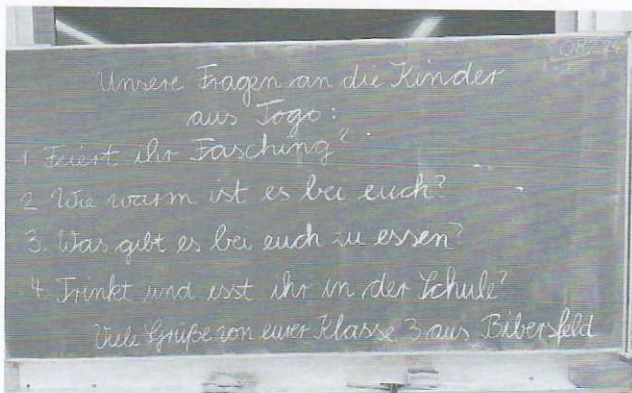 Unsere Fragen an die Kinder
aus Togo:
1 Feiert ihr Fasching?
2 Wie warm ist es bei euch?
3. Was gibt es bei euch zu essen?
4. Trinkt und esst ihr in der Schule?
Viele Grüße von eurer Klasse 3 aus Bibersfeld